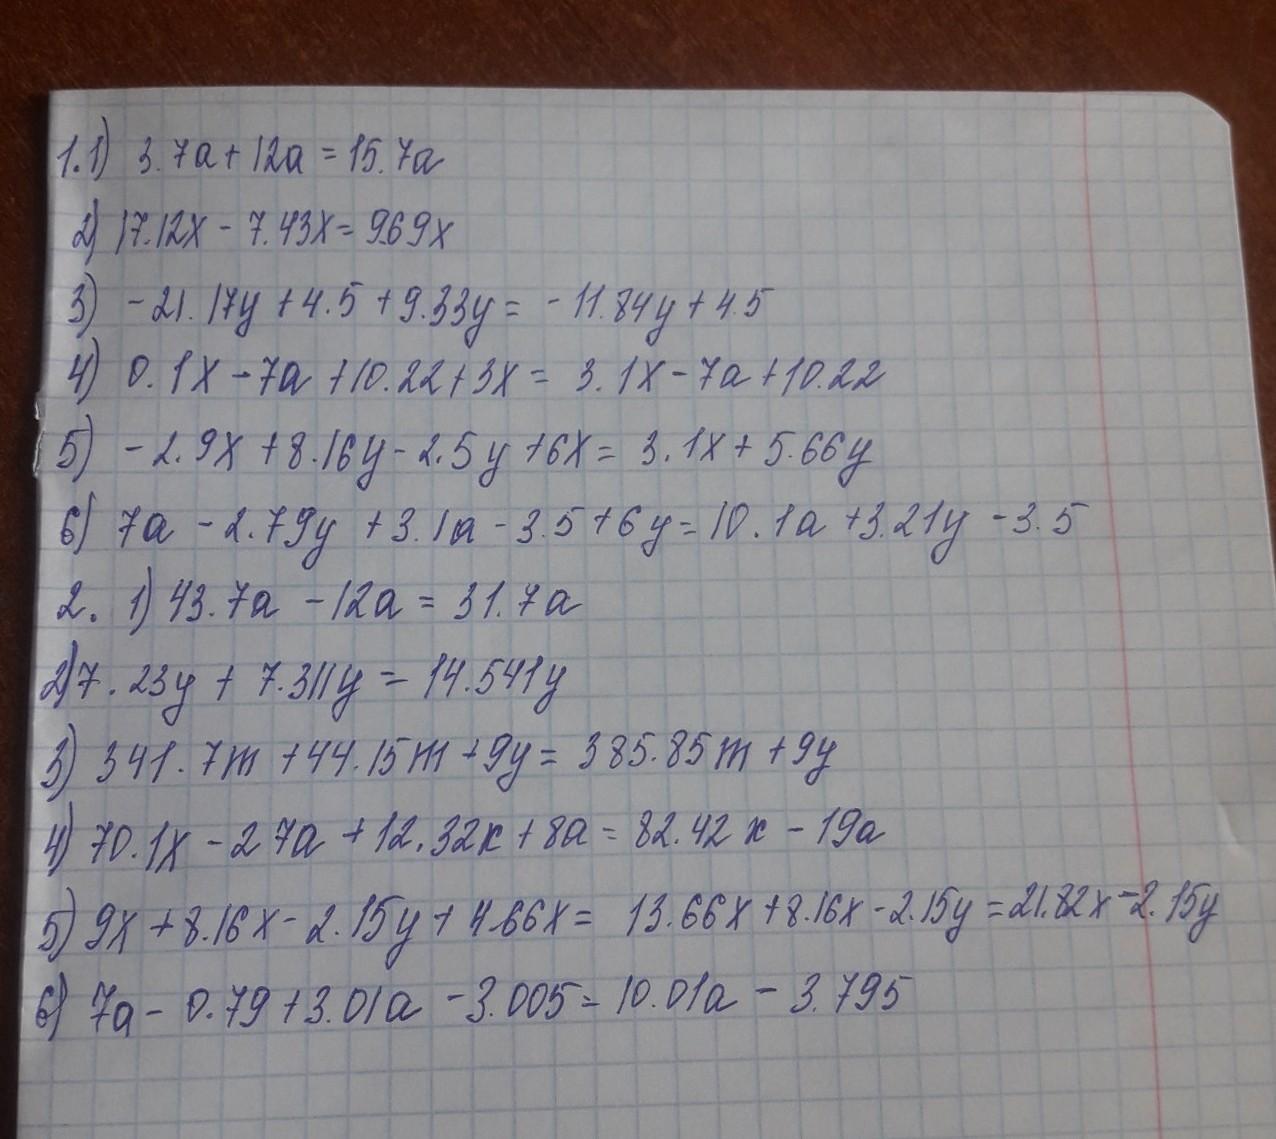 1.1) 3.7a+12a=15.7a
2) 17.12x-7.43x=9.69x
3) -21.17y+4.5+9.33y=-11.84y+4.5
4) 0.1x-7a+10.22+3x=3.1x-7a+10.22
5) -2.9x+8.16y-2.5y+6x=3.1x+5.66y
6) 7a-2.79y+3.1a-3.5+6y=10.1a+3.21y-3.5
2. 1) 43.7a-12a=31.7a
2) 7.23y+7.311y=14.541y
3) 341.7m+44.15m+9y=385.85m+9y
4) 70.1x-27a+12.32x+8a=82.42x-19a
5) 9x+8.16x-2.15y+4.66x=13.66x+8.16x-2.15y=21.82x-2.15y
6) 7a-0.79+3.01a-3.005=10.01a-3.795